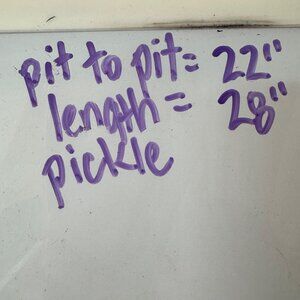 pit to pit= 22"
length= 28"
pickle